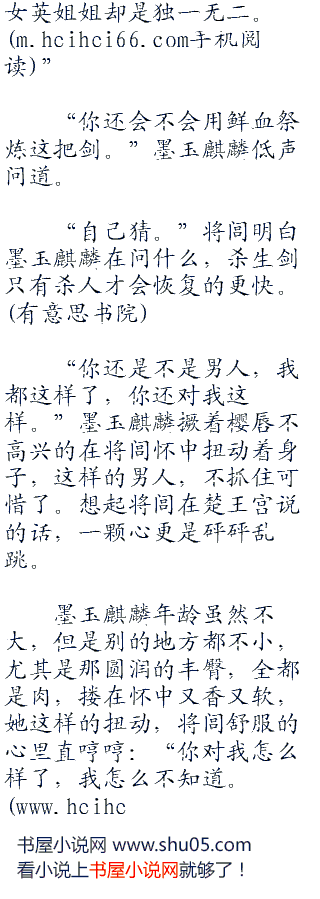 女英姐姐却是独一无二。
(m.hcihci66.com手机阅
读)”
“你还会不会用鲜血祭
炼这把剑。”墨玉麒麟低声
问道。
“自己猜。”将闾明白
墨玉麒麟在问什么，杀生剑
只有杀人才会恢复的更快。
(有意思书院)
“你还是不是男人，我
都这样了，你还对我这
样。”墨玉麒麟撅着樱唇不
高兴的在将闾怀中扭动着身
子，这样的男人，不抓住可
惜了。想起将闾在楚王宫说
的话，一颗心更是砰砰乱
跳。
墨玉麒麟年龄虽然不
大，但是别的地方都不小，
尤其是那圆润的丰臀，全都
是肉，搂在怀中又香又软，
她这样的扭动，将闾舒服的
心里直哼哼：“你对我怎么
样了，我怎么不知道。
(www.hcihc
书屋小说网 www.shu05.com
看小说上书屋小说网就够了！